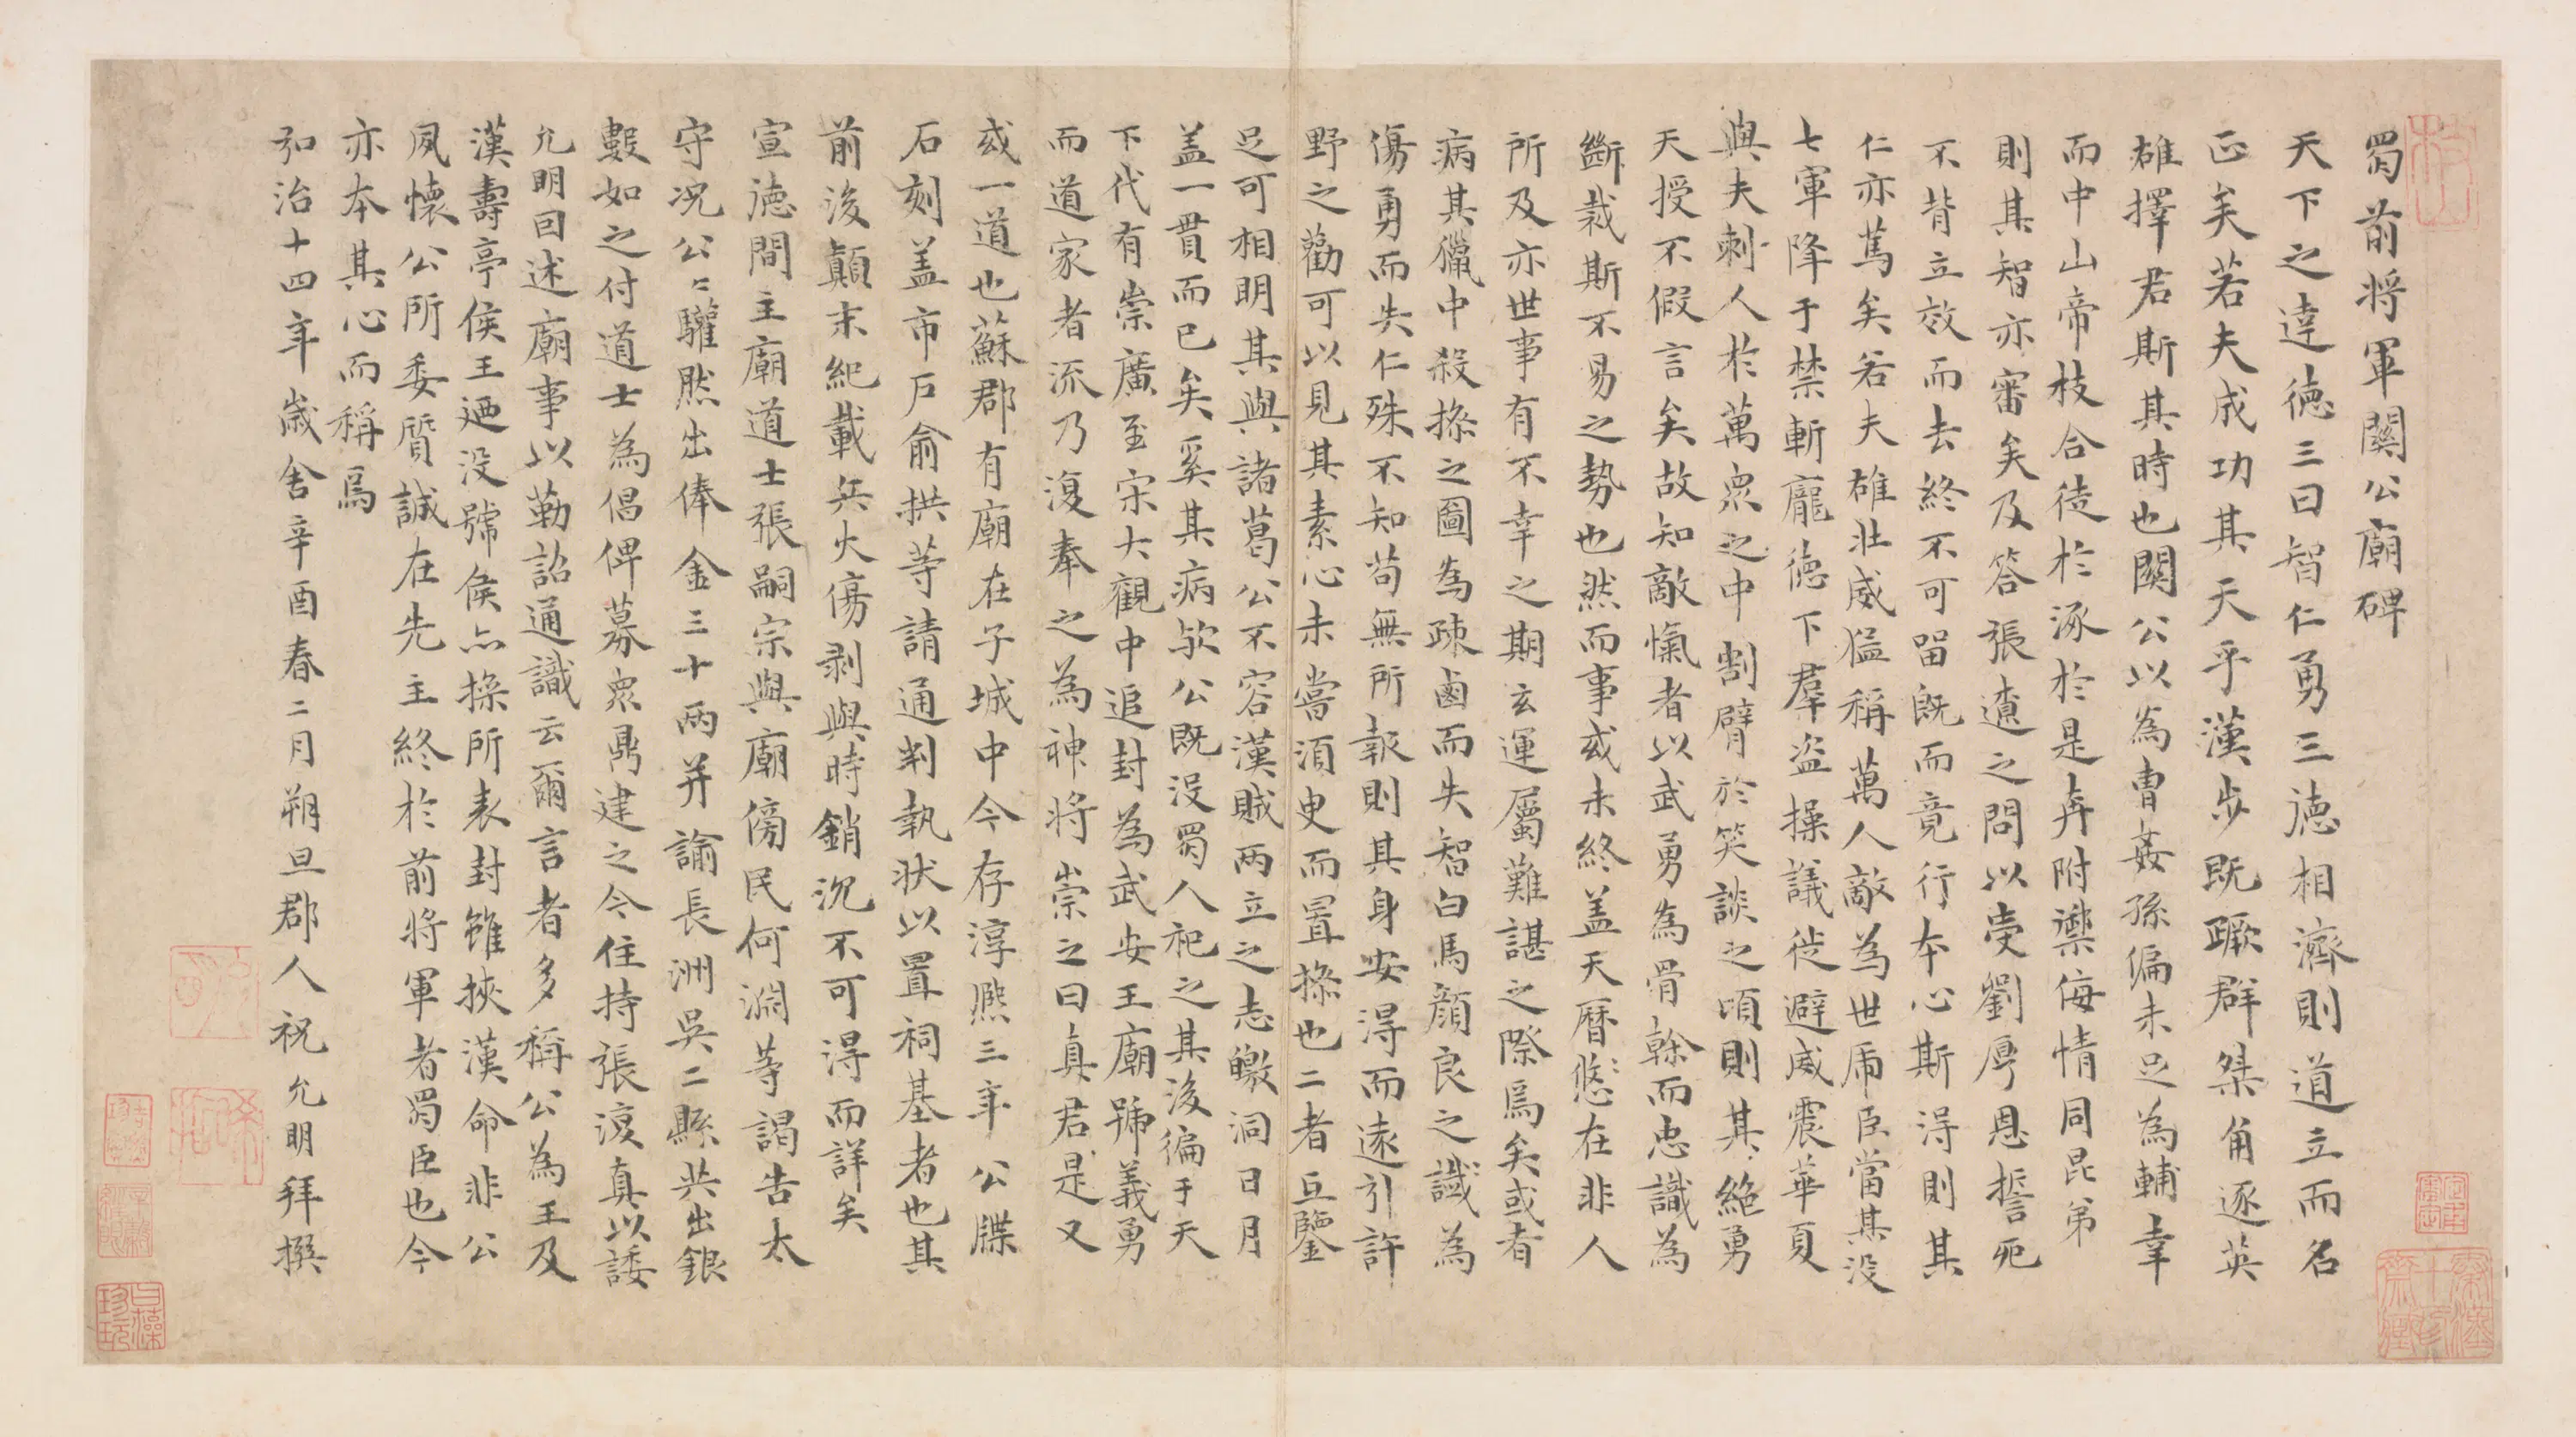 蜀前將軍關公廟碑
天下之達德三曰智仁勇三德相濟則道立而名
正矣若夫成功其天乎漢步既蹶群桀角逐英
雄擇君斯其時也關公以為曹姦孫偏未足為輔幸
而中山帝枝合徒於涿於是奔附禦侮情同昆弟
則其智亦審矣及答張遼之問以受劉厚恩誓死
不背立效而去終不可留既而竟行本心斯得則其
仁亦篤矣若夫雄壯威猛稱萬人敵為世虎臣當其沒
七軍降于禁斬龐德下羣盜操議徙避威震華夏
與夫刺人於萬眾之中割臂於笑談之頃則其絕勇
天授不假言矣故知敵愾者以武勇為骨幹而忠識為
斷裁斯不易之勢也然而事或未終蓋天曆悠在非人
所及亦世事有不幸之期玄運屬難諶之際焉矣或者
病其獵中殺操之圖為疎鹵而失智白馬顏良之誠為
傷勇而失仁殊不知苟無所報則其身安得而遠引許
野之勸可以見其素心未嘗須臾而置操也二者互鑒
足可相明其與諸葛公不容漢賊兩立之志皦洞日月
蓋一貫而已矣奚其病歟公既沒蜀人祀之其後徧于天
下代有崇廣至宋大觀中追封為武安王廟號義勇
而道家者流乃復奉之為神將崇之曰真君是又
或一道也蘇郡有廟在子城中今存淳熙三年公牒
石刻蓋市戶俞拱等請通判執狀以置祠基者也其
前後顛末紀載兵火傷剝與時銷沉不可得而詳矣
宣德間主廟道士張嗣宗與廟傍民何淵等謁告太
守况公公驩然出俸金三十兩并諭長洲吳二縣共出銀
數如之付道士為倡俾募眾鼎建之今住持張復真以諉
允明因述廟事以勒詔通識云爾言者多稱公為王及
漢壽亭侯王迺沒號侯亦操所表封雖挾漢命非公
夙懷公所委質誠在先主終於前將軍者蜀臣也今
亦本其心而稱焉
弘治十四年歲舍辛酉春二月朔旦郡人祝允明拜撰